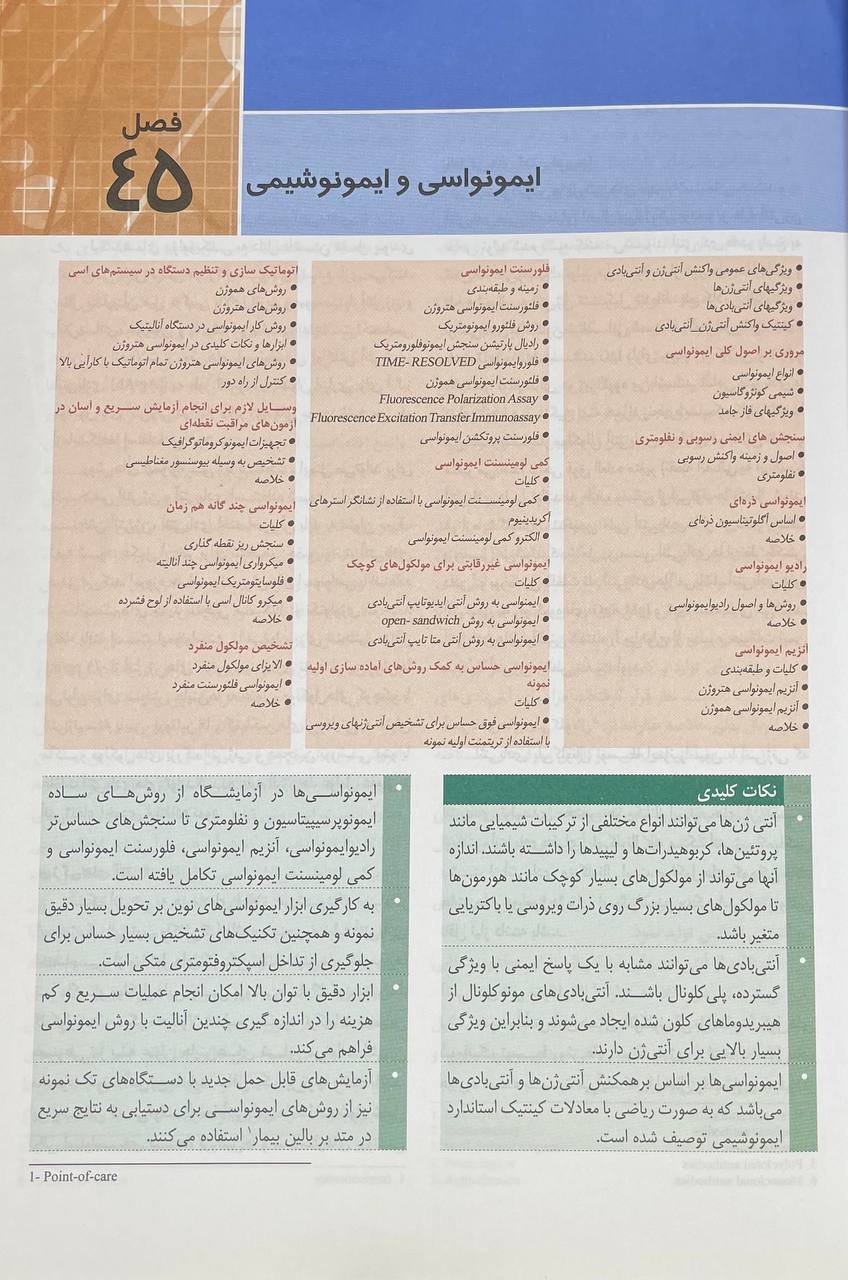 فصل
۴۵
ایمونواسی و ایمونوشیمی
● ویژگی‌های عمومی واکنش آنتی‌ژن و آنتی‌بادی
● ویژگیهای آنتی‌ژن‌ها
● ویژگیهای آنتی‌بادی‌ها
● کینتیک واکنش آنتی‌ژن_آنتی‌بادی
مروری بر اصول کلی ایمونواسی
● انواع ایمونواسی
● شیمی کونژوگاسیون
● ویژگیهای فاز جامد
سنجش های ایمنی رسوبی و نفلومتری
● اصول و زمینه واکنش رسوبی
● نفلومتری
ایمونواسی ذره‌ای
● اساس آگلوتیناسیون ذره‌ای
● خلاصه
رادیو ایمونواسی
● کلیات
● روش‌ها و اصول رادیوایمونواسی
● خلاصه
آنزیم ایمونواسی
● کلیات و طبقه‌بندی
● آنزیم ایمونواسی هتروژن
● آنزیم ایمونواسی هموژن
● خلاصه
فلورسنت ایمونواسی
● زمینه و طبقه‌بندی
● فلئورسنت ایمونواسی هتروژن
● روش فلئورو ایمونومتریک
● رادیال پارتیشن سنجش ایمونوفلورومتریک
● فلوروایمونواسی TIME- RESOLVED
● فلئورسنت ایمونواسی هموژن
● Fluorescence Polarization Assay
● Fluorescence Excitation Transfer Immunoassay
● فلورسنت پروتکشن ایمونواسی
کمی لومینسنت ایمونواسی
● کلیات
● کمی لومینســنت ایمونواسی با استفاده از نشانگر استرهای
آکریدینیوم
● الکترو کمی لومینسنت ایمونواسی
ایمونواسی غیررقابتی برای مولکول‌های کوچک
● کلیات
● ایمنواسی به روش آنتی ایدیوتایپ آنتی‌بادی
● ایمونواسی به روش open- sandwich
● ایمونواسی به روش آنتی متا تایپ آنتی‌بادی
ایمونواسی حساس به کمک روش‌های آماده سازی اولیه
نمونه
● کلیات
● ایمونواسی فوق حساس برای تشخیص آنتی‌ژنهای ویروسی
با استفاده از تریتمنت اولیه نمونه
اتوماتیک سازی و تنظیم دستگاه در سیستم‌های اسی
● روش‌های هموژن
● روش‌های هتروژن
● روش کار ایمونواسی در دستگاه آنالیتیک
● ابزارها و نکات کلیدی در ایمونواسی هتروژن
● روش‌های ایمونواسی هتروژن تمام اتوماتیک با کارآیی بالا
● کنترل از راه دور
وســایل لازم برای انجام آزمایش ســریع و آسان در
آزمون‌های مراقبت نقطه‌ای
● تجهیزات ایمونوکروماتوگرافیک
● تشخیص به وسیله بیوسنسور مغناطیسی
● خلاصه
ایمونواسی چند گانه هم زمان
● کلیات
● سنجش ریز نقطه گذاری
● میکرواری ایمونواسی چند آنالیته
● فلوسایتومتریک ایمونواسی
● میکرو کانال اسی با استفاده از لوح فشرده
● خلاصه
تشخیص مولکول منفرد
● الایزای مولکول منفرد
● ایمونواسی فلئورسنت منفرد
● خلاصه
نکات کلیدی
• آنتی ژن‌ها می‌توانند انواع مختلفی از ترکیبات شیمیایی مانند
پروتئین‌ها، کربوهیدرات‌ها و لیپیدها را داشــته باشند. اندازه
آنها می‌تواند از مولکول‌های بسیار کوچک مانند هورمون‌ها
تا مولکول‌های بسیار بزرگ روی ذرات ویروسی یا باکتریایی
متغیر باشد.
• آنتی‌بادی‌ها می‌توانند مشابه با یک پاسخ ایمنی با ویژگی
گسترده، پلی‌کلونال باشــند. آنتی‌بادی‌های مونوکلونال از
هیبریدوماهای کلون شده ایجاد می‌شوند و بنابراین ویژگی
بسیار بالایی برای آنتی‌ژن دارند.
• ایمونواسی‌ها بر اساس برهمکنش آنتی‌ژن‌ها و آنتی‌بادی‌ها
می‌باشد که به صورت ریاضی با معادلات کینتیک استاندارد
ایمونوشیمی توصیف شده است.
• ایمونواســی‌ها در آزمایشــگاه از روش‌هــای ســاده
ایمونوپرسیپیتاسیون و نفلومتری تا سنجش‌های حساس‌تر
رادیوایمونواسی، آنزیم ایمونواسی، فلورسنت ایمونواسی و
کمی لومینسنت ایمونواسی تکامل یافته است.
• به کارگیری ابزار ایمونواسی‌های نوین بر تحویل بسیار دقیق
نمونه و همچنین تکنیک‌های تشخیص بسیار حساس برای
جلوگیری از تداخل اسپکتروفتومتری متکی است.
• ابزار دقیق با توان بالا امکان انجام عملیات ســریع و کم
هزینه را در اندازه گیری چندین آنالیت با روش ایمونواسی
فراهم می‌کند.
• آزمایش‌های قابل حمل جدید با دســتگاه‌های تک نمونه
نیز از روش‌های ایمونواســی برای دستیابی به نتایج سریع
در متد بر بالین بیمار۱ استفاده می‌کنند.
1- Point-of-care